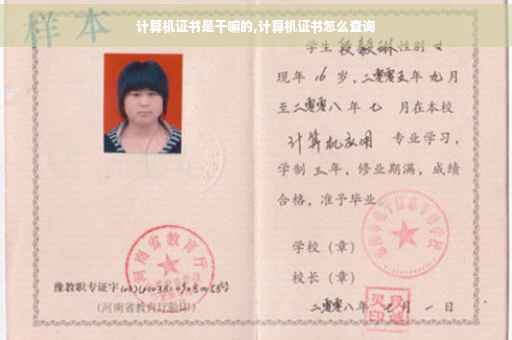 计算机证书是干嘛的,计算机证书怎么查询
样本
学生 段毅琳 性别 女
现年 16 岁，二零零五年 九 月
至二零零八年 七 月在本校
计算机应用 专业学习，
学制 三 年，修业期满，成绩
合格，准予毕业。
学校（章）
校长（章）
二零零八年 七 月 一 日
河南省教育厅
豫教职专证字
(河南省教育厅验印)